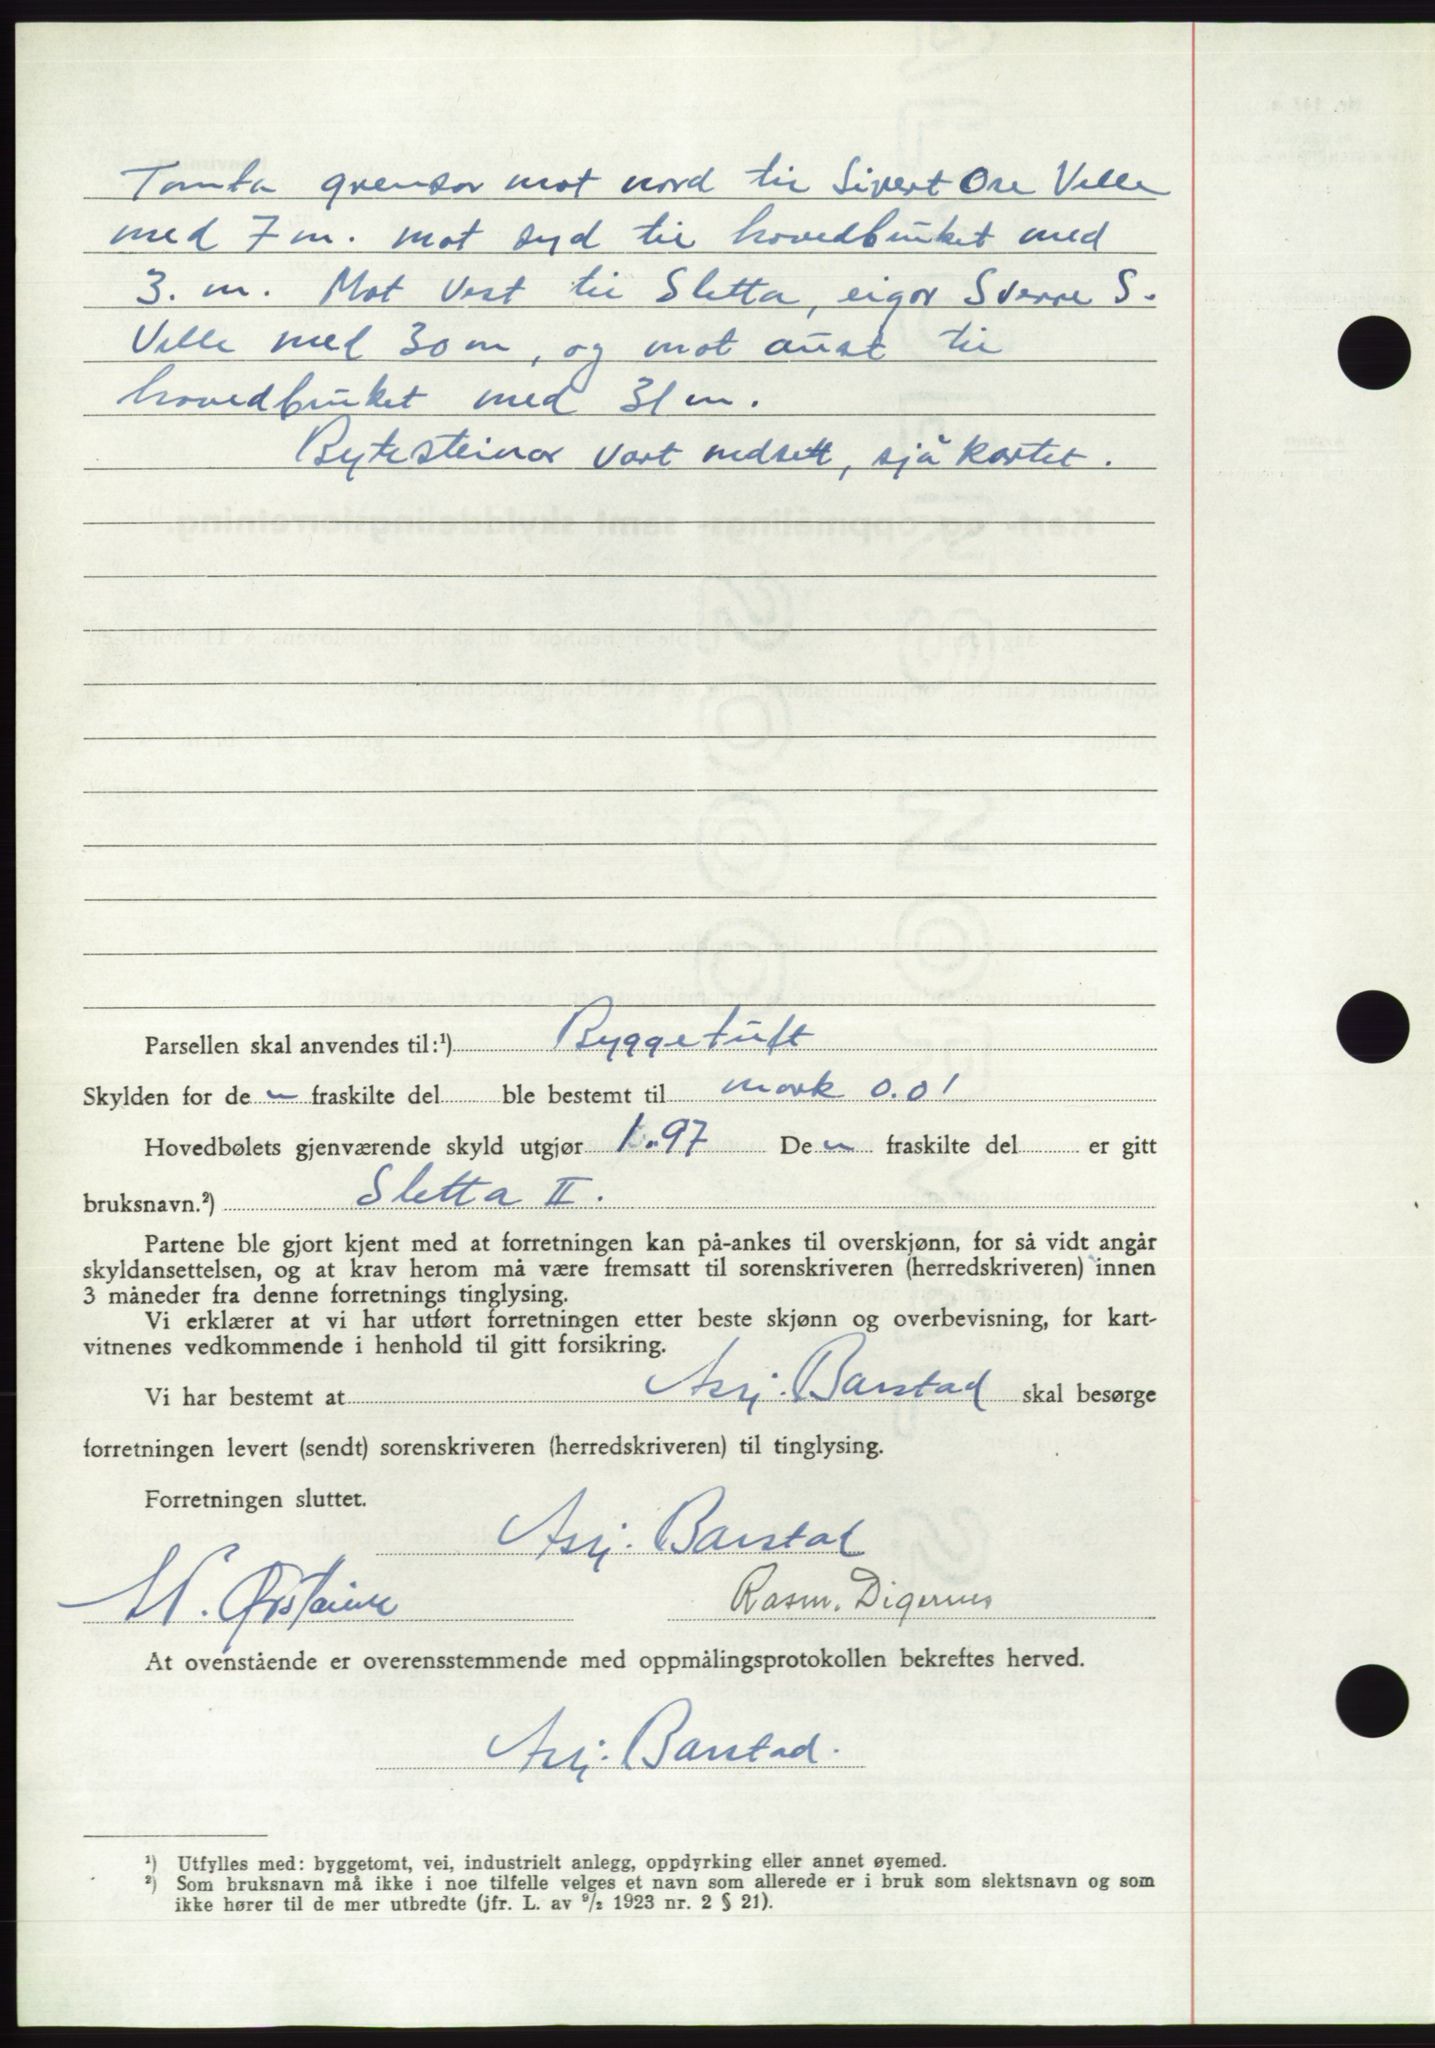 Tomta grensar mot nord til Sivert One Velle
med 7 m. mot syd til hovedbruket med
3. m. Mot vest til Sletta, eigar Sverre S.
Velle med 30 m, og mot aust til
hovedbruket med 31 m.
Bytesteinar vart nedsett, sjå kartet.
Parsellen skal anvendes til:¹) Byggetuft
Skylden for de n fraskilte del ble bestemt til mark 0.01
Hovedbølets gjenværende skyld utgjør 1.97 De n fraskilte del er gitt
bruksnavn.²) Sletta II.
Partene ble gjort kjent med at forretningen kan på-ankes til overskjønn, for så vidt angår
skyldansettelsen, og at krav herom må være fremsatt til sorenskriveren (herredskriveren) innen
3 måneder fra denne forretnings tinglysing.
Vi erklærer at vi har utført forretningen etter beste skjønn og overbevisning, for kart-
vitnenes vedkommende i henhold til gitt forsikring.
Vi har bestemt at Asbj. Barstad skal besørge
forretningen levert (sendt) sorenskriveren (herredskriveren) til tinglysing.
Forretningen sluttet.
Asbj. Barstad
Rasm. Digernes
At ovenstående er overensstemmende med oppmålingsprotokollen bekreftes herved.
Asbj. Barstad.
¹) Utfylles med: byggetomt, vei, industrielt anlegg, oppdyrking eller annet øyemed.
²) Som bruksnavn må ikke i noe tilfelle velges et navn som allerede er i bruk som slektsnavn og som
ikke hører til de mer utbredte (jfr. L. av ⁹/₂ 1923 nr. 2 § 21).